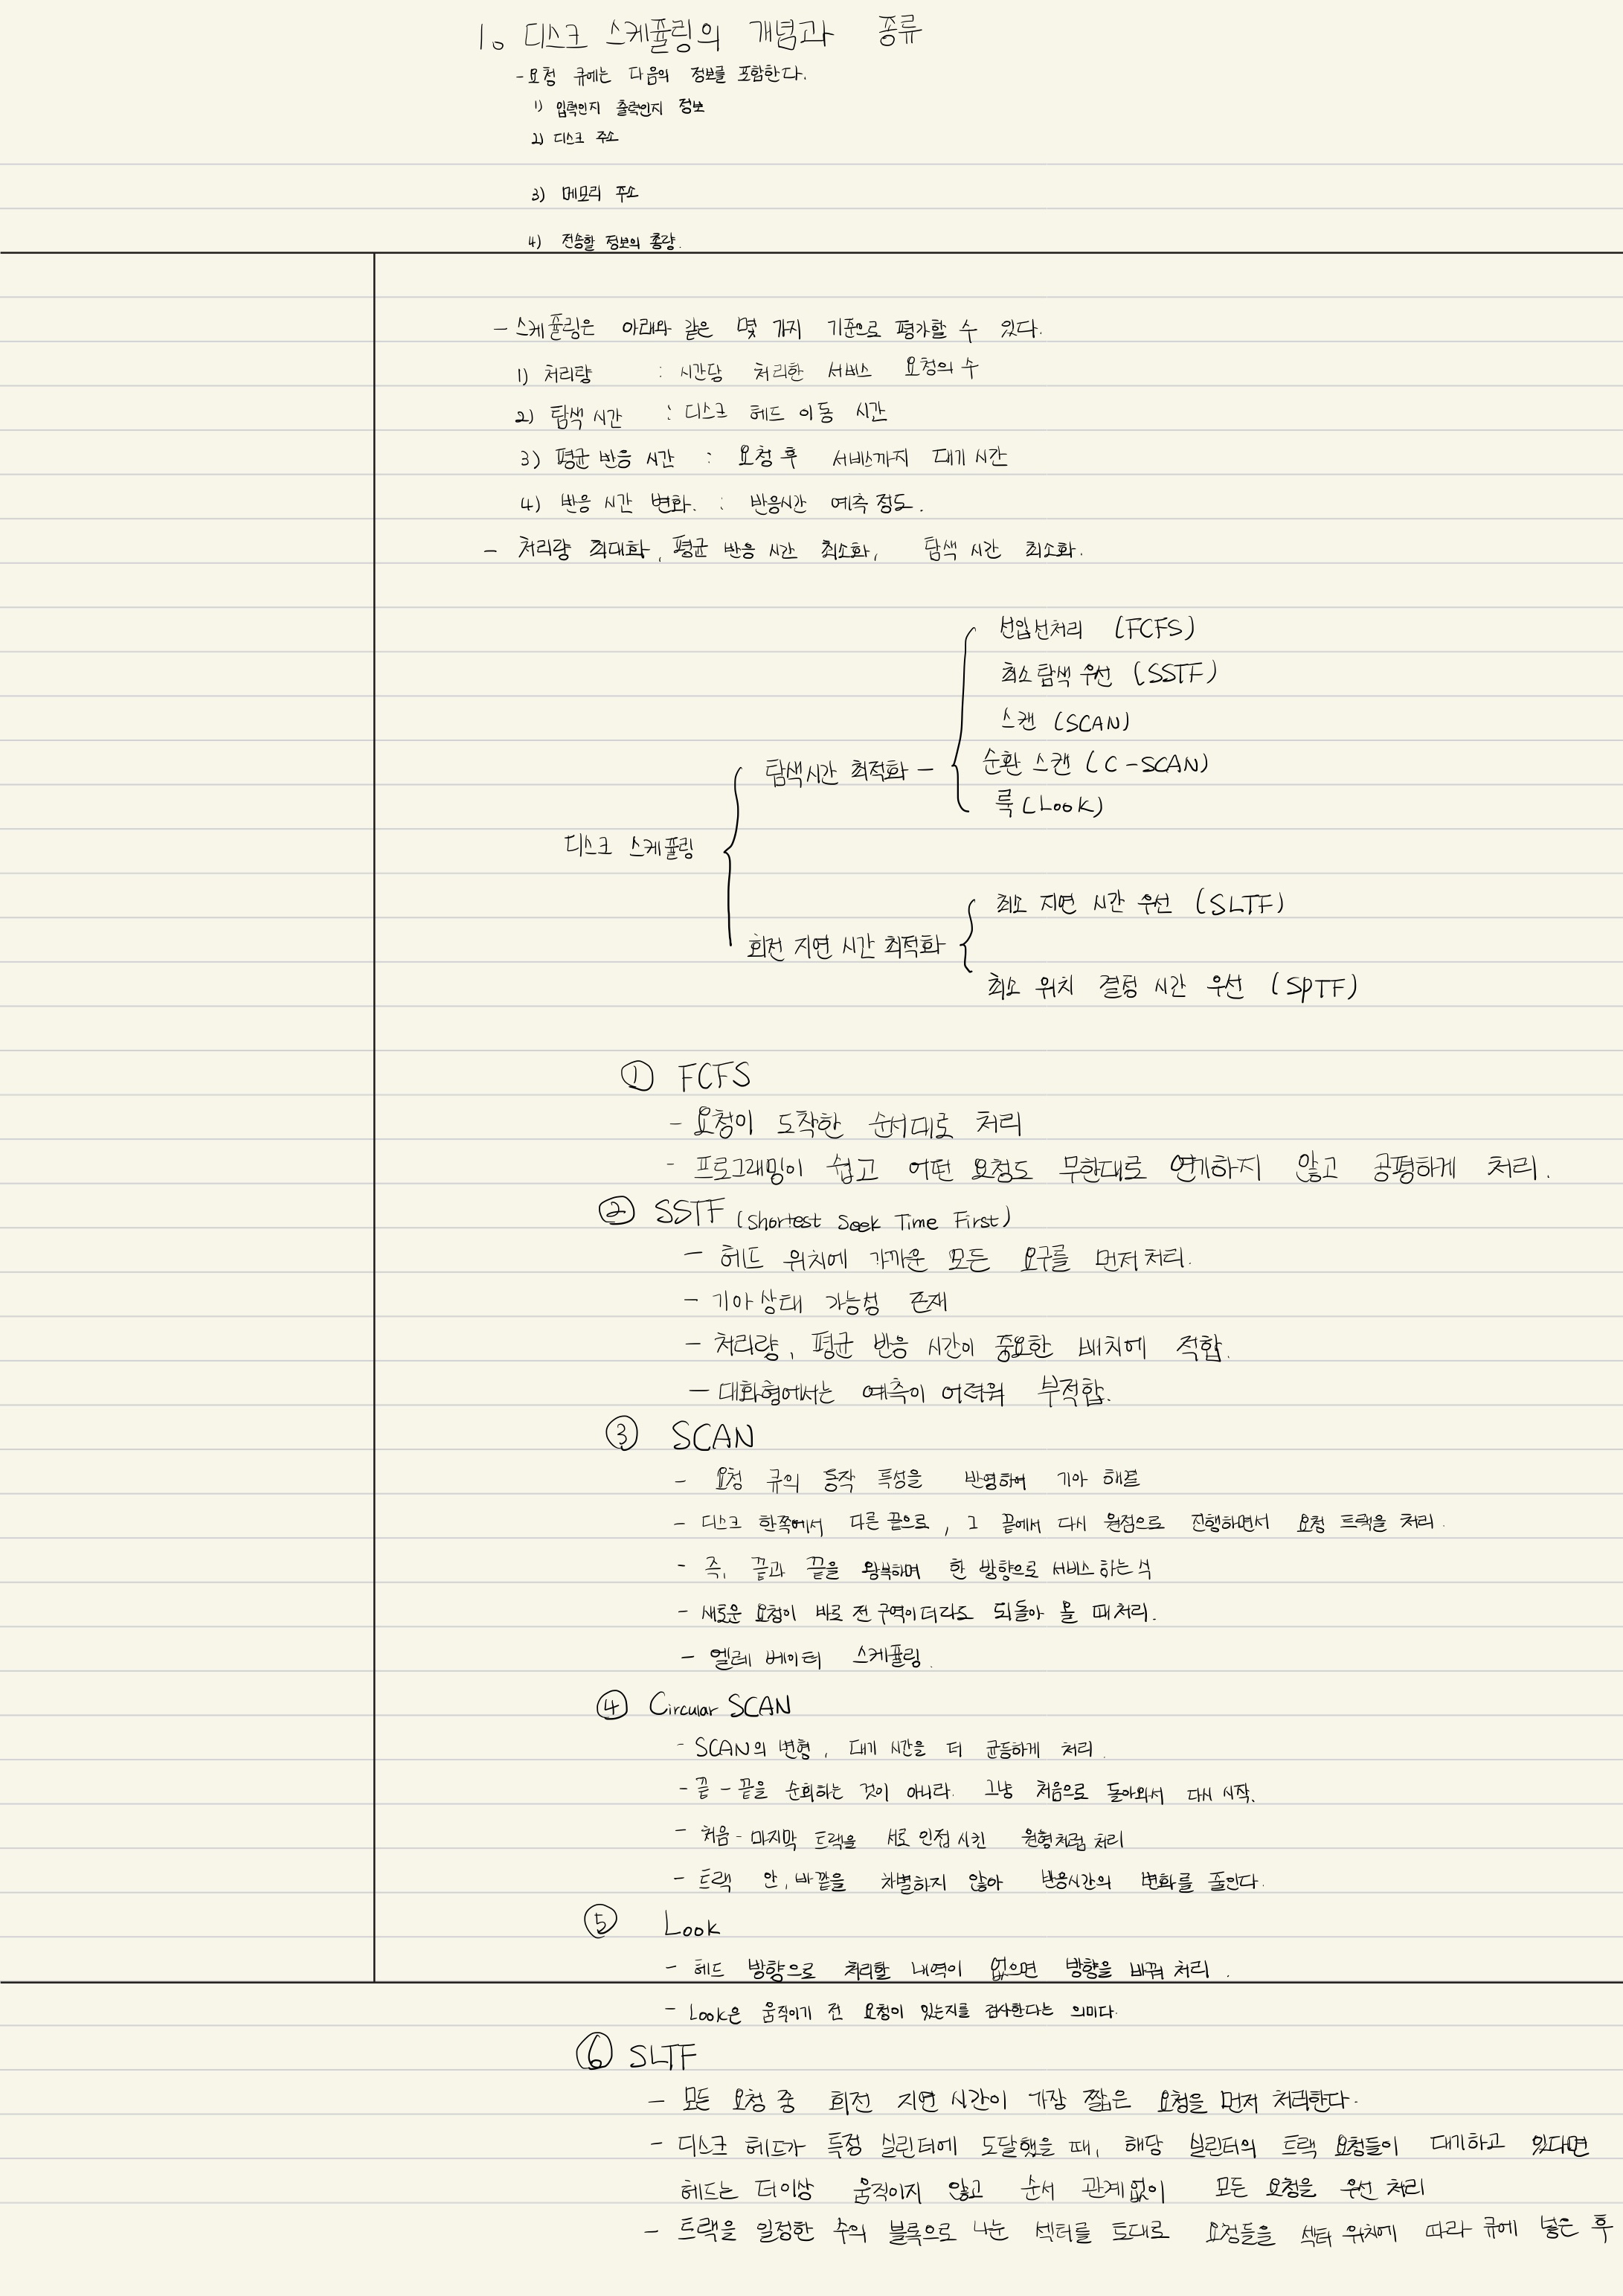 1. 디스크 스케쥴링의 개념과 종류
- 요청 큐에는 다음의 정보를 포함한다.
1) 입력인지 출력인지 정보
2) 디스크 주소
3) 메모리 주소
4) 전송할 정보의 총량.
- 스케쥴링은 아래와 같은 몇 가지 기준으로 평가할 수 있다.
1) 처리량 : 시간당 처리한 서비스 요청의 수
2) 탐색 시간 : 디스크 헤드 이동 시간
3) 평균 반응 시간 : 요청 후 서비스까지 대기 시간
4) 반응 시간 변화. : 반응시간 예측 정도.
- 처리량 최대화, 평균 반응 시간 최소화, 탐색 시간 최소화.
선입선처리 (FCFS)
최소탐색 우선 (SSTF)
스캔 (SCAN)
탐색시간 최적화 - 순환 스캔 (C-SCAN)
룩 (Look)
디스크 스케쥴링
최소 지연 시간 우선 (SLTF)
회전 지연 시간 최적화
최소 위치 결정 시간 우선 (SPTF)
① FCFS
- 요청이 도착한 순서대로 처리
- 프로그래밍이 쉽고 어떤 요청도 무한대로 연기하지 않고 공평하게 처리.
② SSTF (Shortest Seek Time First)
- 헤드 위치에 가까운 모든 요구를 먼저 처리.
- 기아 상태 가능성 존재
- 처리량, 평균 반응 시간이 중요한 배치에 적합.
- 대화형에서는 예측이 어려워 부적합.
③ SCAN
- 요청 큐의 동작 특성을 반영하여 기아 해결
- 디스크 한쪽에서 다른 끝으로, 그 끝에서 다시 원점으로 진행하면서 요청 트랙을 처리.
- 즉, 끝과 끝을 왕복하며 한 방향으로 서비스 하는 식
- 새로운 요청이 바로 전 구역이더라도 되돌아 올 때 처리.
- 엘레베이터 스케쥴링.
④ Circular SCAN
- SCAN의 변형, 대기 시간을 더 균등하게 처리.
- 끝 - 끝을 순회하는 것이 아니라. 그냥 처음으로 돌아와서 다시 시작.
- 처음 - 마지막 트랙을 서로 인접 시킨 원형처럼 처리
- 트랙 안, 바깥을 차별하지 않아 반응시간의 변화를 줄인다.
⑤ Look
- 헤드 방향으로 처리할 내역이 없으면 방향을 바꿔 처리.
- Look은 움직이기 전 요청이 있는지를 검사한다는 의미다.
⑥ SLTF
- 모든 요청 중 회전 지연 시간이 가장 짧은 요청을 먼저 처리한다.
- 디스크 헤드가 특정 실린더에 도달했을 때, 해당 실린더의 트랙 요청들이 대기하고 있다면
헤드는 더이상 움직이지 않고 순서 관계없이 모든 요청을 우선 처리
- 트랙을 일정한 수의 블록으로 나눈 섹터를 토대로 요청들을 섹터 위치에 따라 큐에 넣은 후